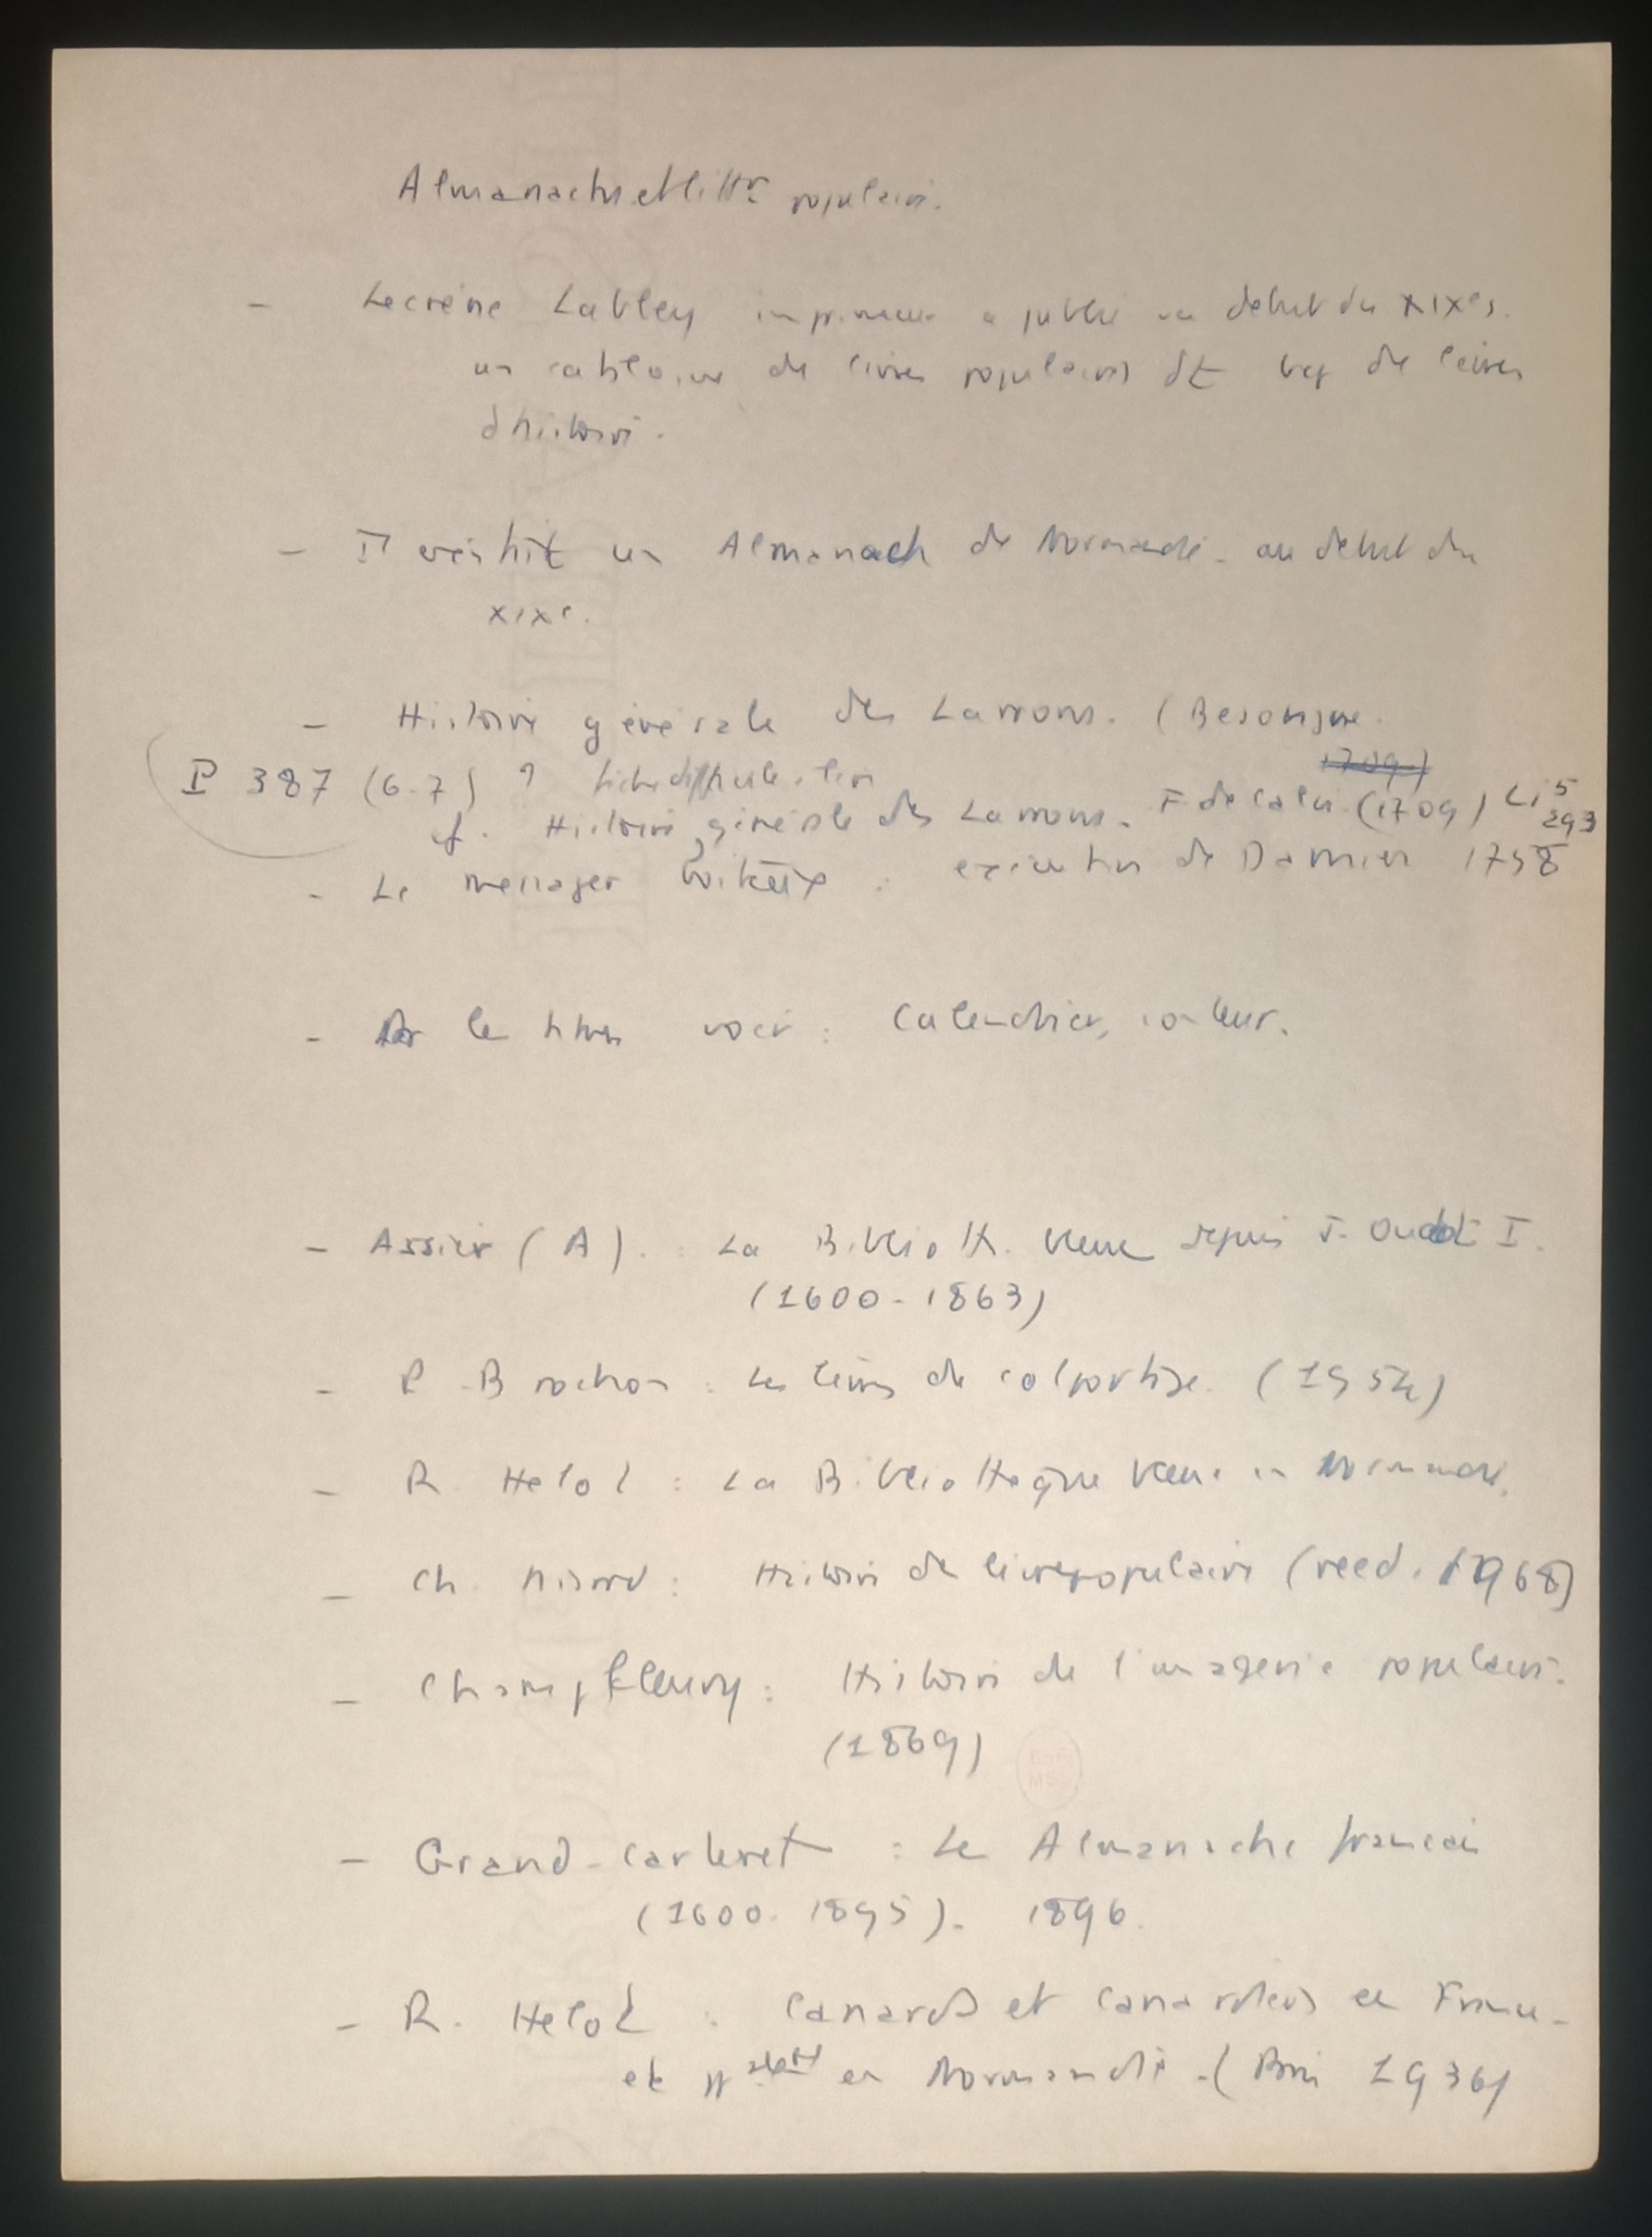 Almanachs et litt^re populaire.
- Lecrêne Labbey imprimeur a publié au début du XIX^e s.
un catalogue de livres populaires dt bcp de livres
d'histoire.
- Il existait un Almanach de Normandie au début du
XIX^e.
- Histoire générale des Larrons. (Besongne.
1709)
P 387 (6-7) ?
cf. Histoire générale des Larrons. F. de Calvi (1709) Li^5 293
- Le messager boiteux : exécution de Damien 1758
- Par le titres voir : Calendrier, conteur.
- Assier (A). : La Biblioth. bleue depuis J. Oudot I.
(1600-1863)
- P. Brochon : Les livres de colportage. (1954)
- R. Helot : La Bibliothèque bleue en Normandie.
- Ch. Nisard : Histoire de livre populaire (reed. 1968)
- Champfleury : Histoire de l'imagerie populaire.
(1869)
- Grand-Carteret : Les Almanachs français
(1600-1895). 1896.
- R. Helot : Canards et Canardiers en France -
et en Normandie. (Paris 1936)